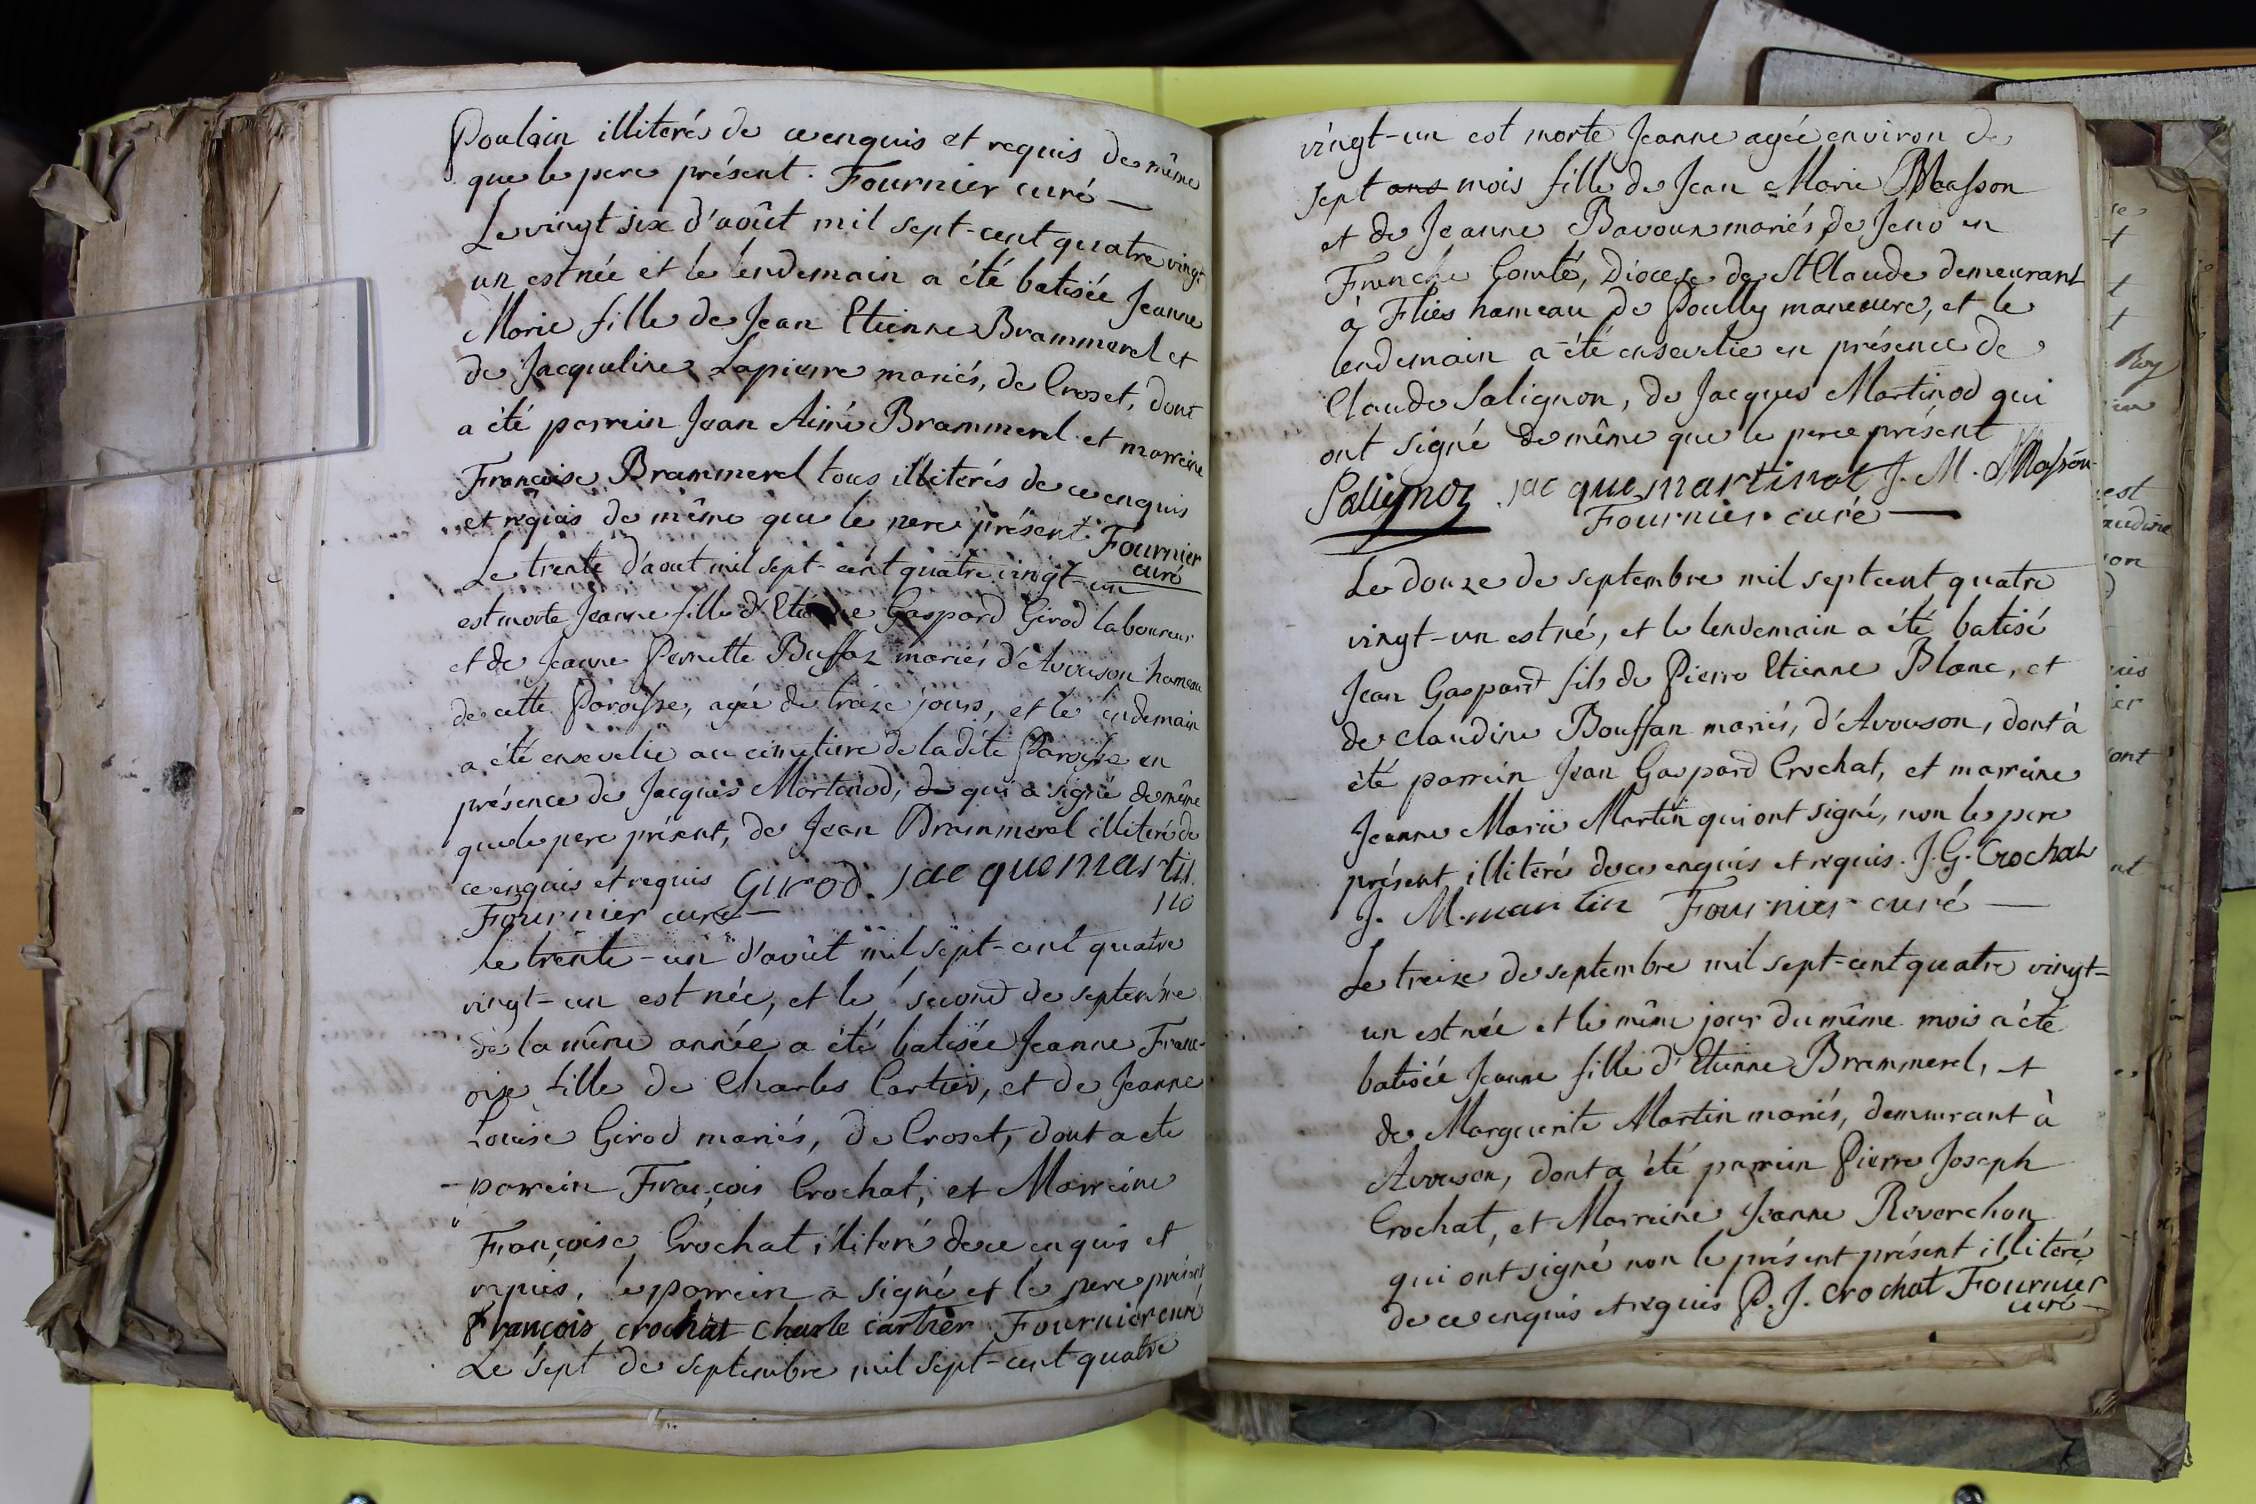 Poulain illiterés de ce enquis et requis de même
que le pere présent. Fournier curé
Le vingt six d'août mil sept-cent quatre vingt
un est née et le lendemain a été batisée Jeanne
Marie fille de Jean Etienne Brammerel et
de Jacqueline Lapierre mariés, de Croset, dont
a été parrein Jean Aimé Brammerel et marreine
Françoise Brammerel tous illiterés de ce enquis
et requis de même que le pere présent. Fournier
curé
Le trente d'aout mil sept-cent quatre vingt-un
est morte Jeanne fille d'Etienne Gaspard Girod laboureur
et de Jeanne Pernette Buffaz mariés d'Avouson hameau
de cette Paroisse, agée de treize jours, et le lendemain
a été ensevelie au cimetiere de la dite Paroisse en
présence de Jacques Martinod, de qui a signé de même
que le pere présent, de Jean Brammerel illiteré de
ce enquis et requis Girod. jacque marti
no
Fournier curé
Le trente-un d'août mil sept-cent quatre
vingt-un est née, et le second de septembre
de la même année a été batisée Jeanne Franç-
oise fille de Charles Cartier, et de Jeanne
Louise Girod mariés, de Croset, dont a été
parrein François Crochat, et Marreine
Françoise Crochat illiteré de ce enquis et
requis, le parrein a signé et le pere présent
françois crochat charle cartier Fournier curé
Le sept de septembre mil sept-cent quatre
vingt-un est morte Jeanne agée environ de
sept ans mois fille de Jean Marie Masson
et de Jeanne mariés de en
Franche Comté, Diocese de St Claude demeurant
à Flies hameau de Poully manouvre, et le
lendemain a été ensevelie en présence de
Claude Salignon, de Jacques Martinod qui
ont signé de même que le pere présent
jacque martinot J. M. Masson
Fournier curé
Le douze de septembre mil sept cent quatre
vingt-un est né, et le lendemain a été batisé
Jean Gaspard fils de Pierre Etienne Blanc, et
de claudine Bouffan mariés, d'Avouson, dont à
été parrein Jean Gaspard Crochat, et marreine
Jeanne Marie Martin qui ont signé, non le pere
présent illiteré de ce enquis et requis. J. G. Crochat
J. M. martin Fournier curé
Le treize de septembre mil sept-cent quatre vingt-
un est née et le même jour du même mois a été
batisée Jeanne fille d'Etienne Brammerel, et
de Marguerite Martin mariés, demeurant à
Avouson, dont a été parrein Pierre Joseph
Crochat, et Marreine Jeanne Reverchon
qui ont signé non le présent présent illiteré
de ce enquis et requis P. J. crochat Fournier
curé